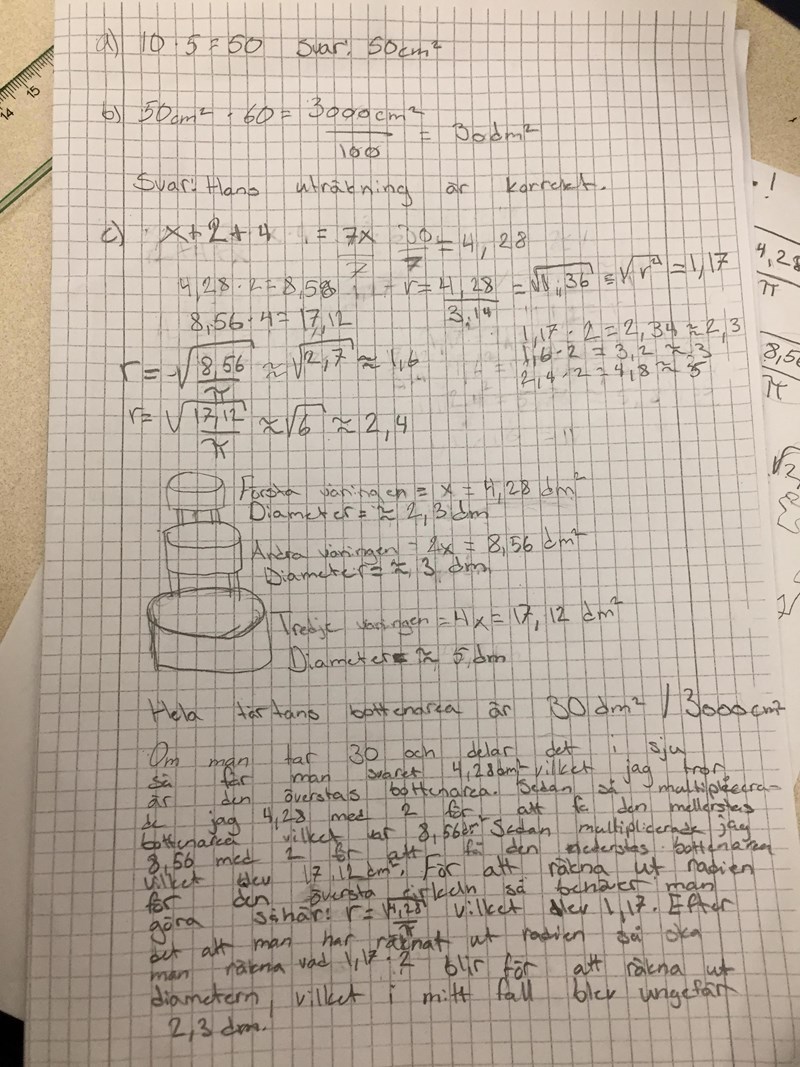 a) 10 · 5 = 50 Svar: 50cm²
b) 50cm² · 60 = 3000cm² / 100 = 30dm²
Svar: Hans uträkning är korrekt.
c) x + 2 + 4 = 7x / 7 30 / 7 = 4,28
4,28 · 2 = 8,56 r = 4,28 / 3,14 = √1,36 = √r² = 1,17
8,56 · 4 = 17,12
1,17 · 2 = 2,34 ≈ 2,3
r = √8,56 / π ≈ √2,7 ≈ 1,6 1,6 · 2 = 3,2 ≈ 3
2,4 · 2 = 4,8 ≈ 5
r = √17,12 / π ≈ √6 ≈ 2,4
Första våningen = x = 4,28 dm²
Diameter = ≈ 2,3 dm
Andra våningen = 2x = 8,56 dm²
Diameter = ≈ 3 dm
Tredje våningen = 4x = 17,12 dm²
Diameter = ≈ 5 dm
Hela tårtans bottenarea är 30 dm² / 3000cm²
Om man tar 30 och delar det i sju
så får man svaret 4,28dm² vilket jag tror
är den överstas bottenarea. Sedan så multiplicera-
de jag 4,28 med 2 för att få den mellerstas
bottenarea vilket var 8,56dm² Sedan multiplicerade jag
8,56 med 2 för att få den nederstas bottenarea
vilket blev 17,12 dm². För att räkna ut radien
för den översta cirkeln så behöver man
göra såhär: r = √4,28 / π vilket blev 1,17. Efter
det att man har räknat ut radien så ska
man räkna vad 1,17 · 2 blir för att räkna ut
diametern, vilket i mitt fall blev ungefärt
2,3 dm.
14 15
!
4,28
π
8,56
π